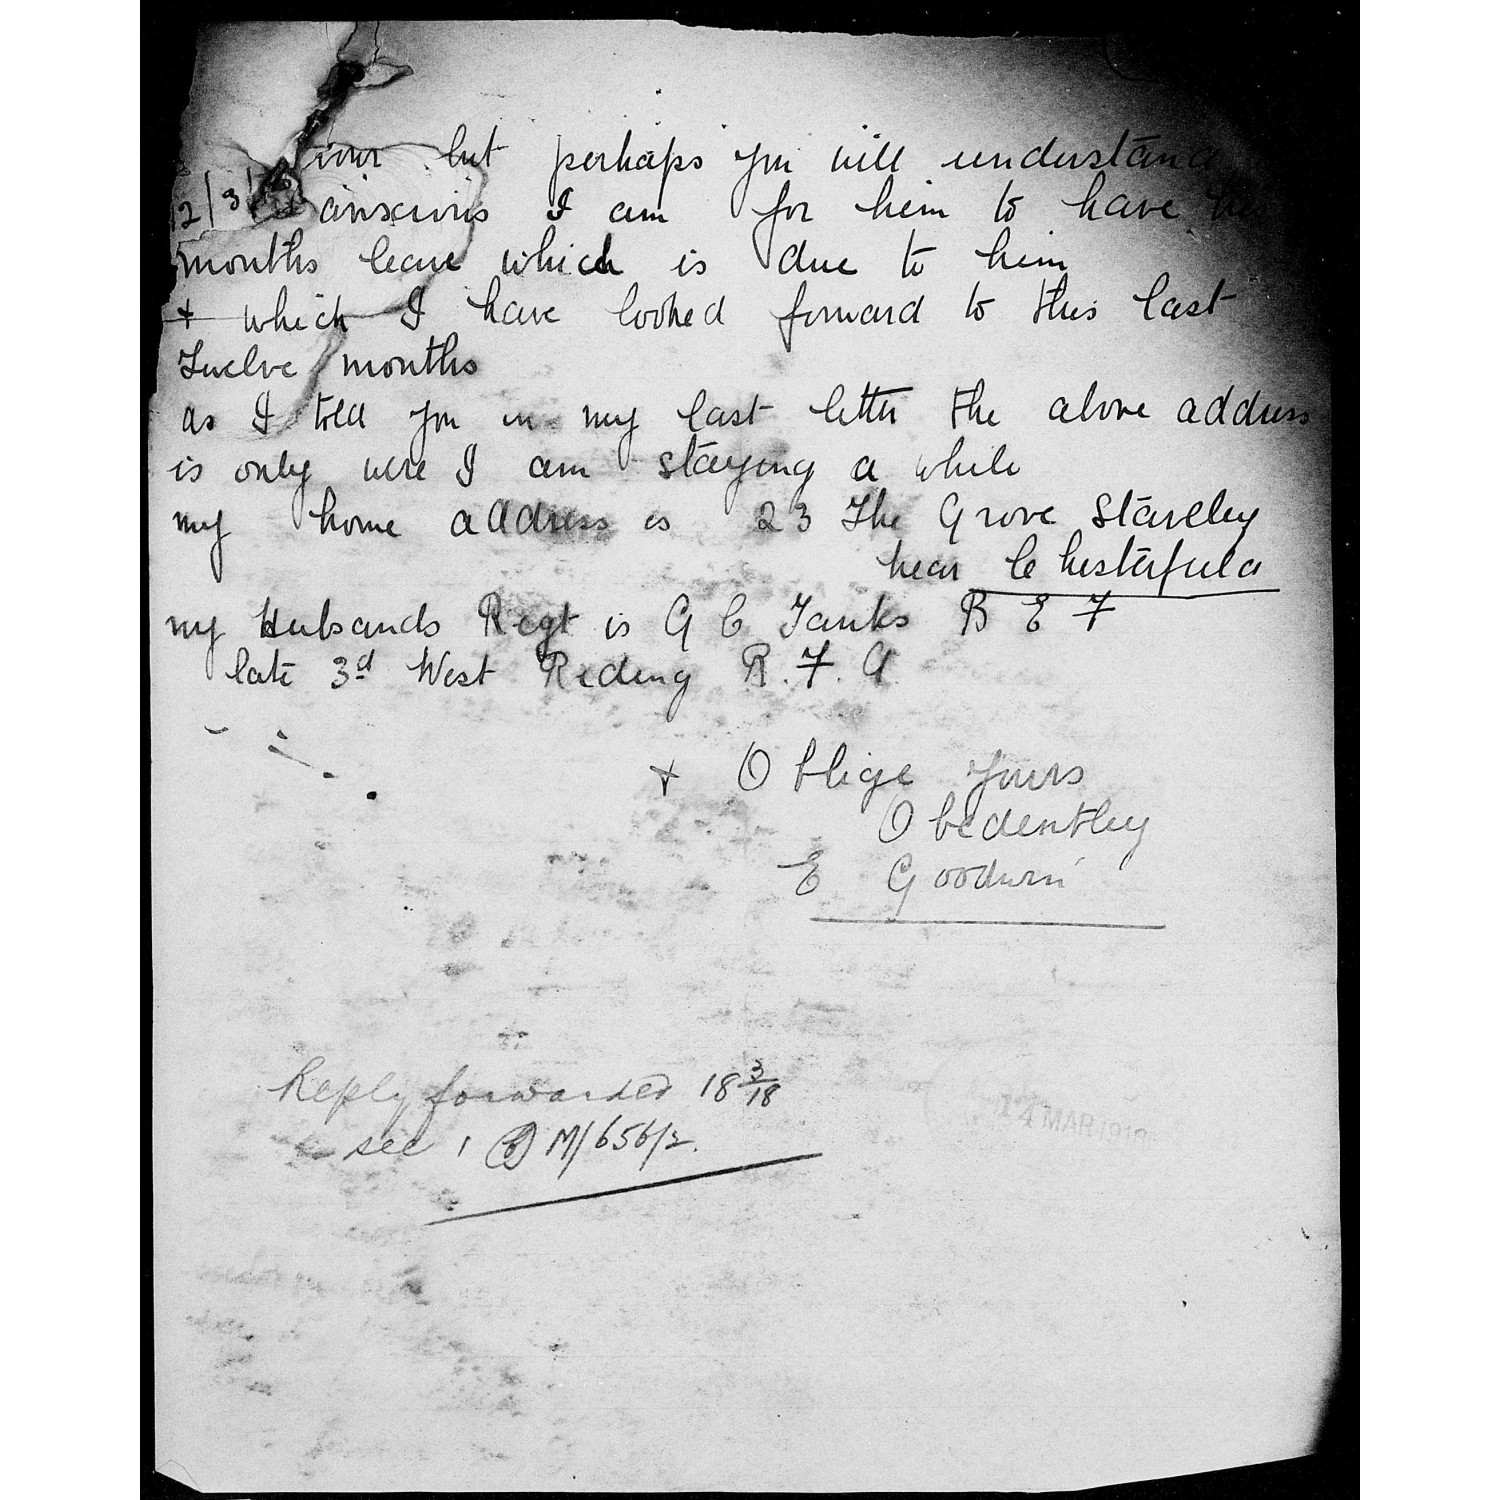 your but perhaps you will understand
2/3/18 anxious I am for him to have
months leave which is due to him
+ which I have looked forward to this last
Twelve months
as I told you in my last letter the above address
is only were I am staying a while
my home address is 23 The Grove Staveley
near Chesterfield
my Hubsands Regt is G C Tanks B E F
late 3d West Reding R.F.A
+ Oblige yours
Obedentley
E Goodwin
Reply forwarded 18 3/18
see 1 M/656/2.
14 MAR 1918